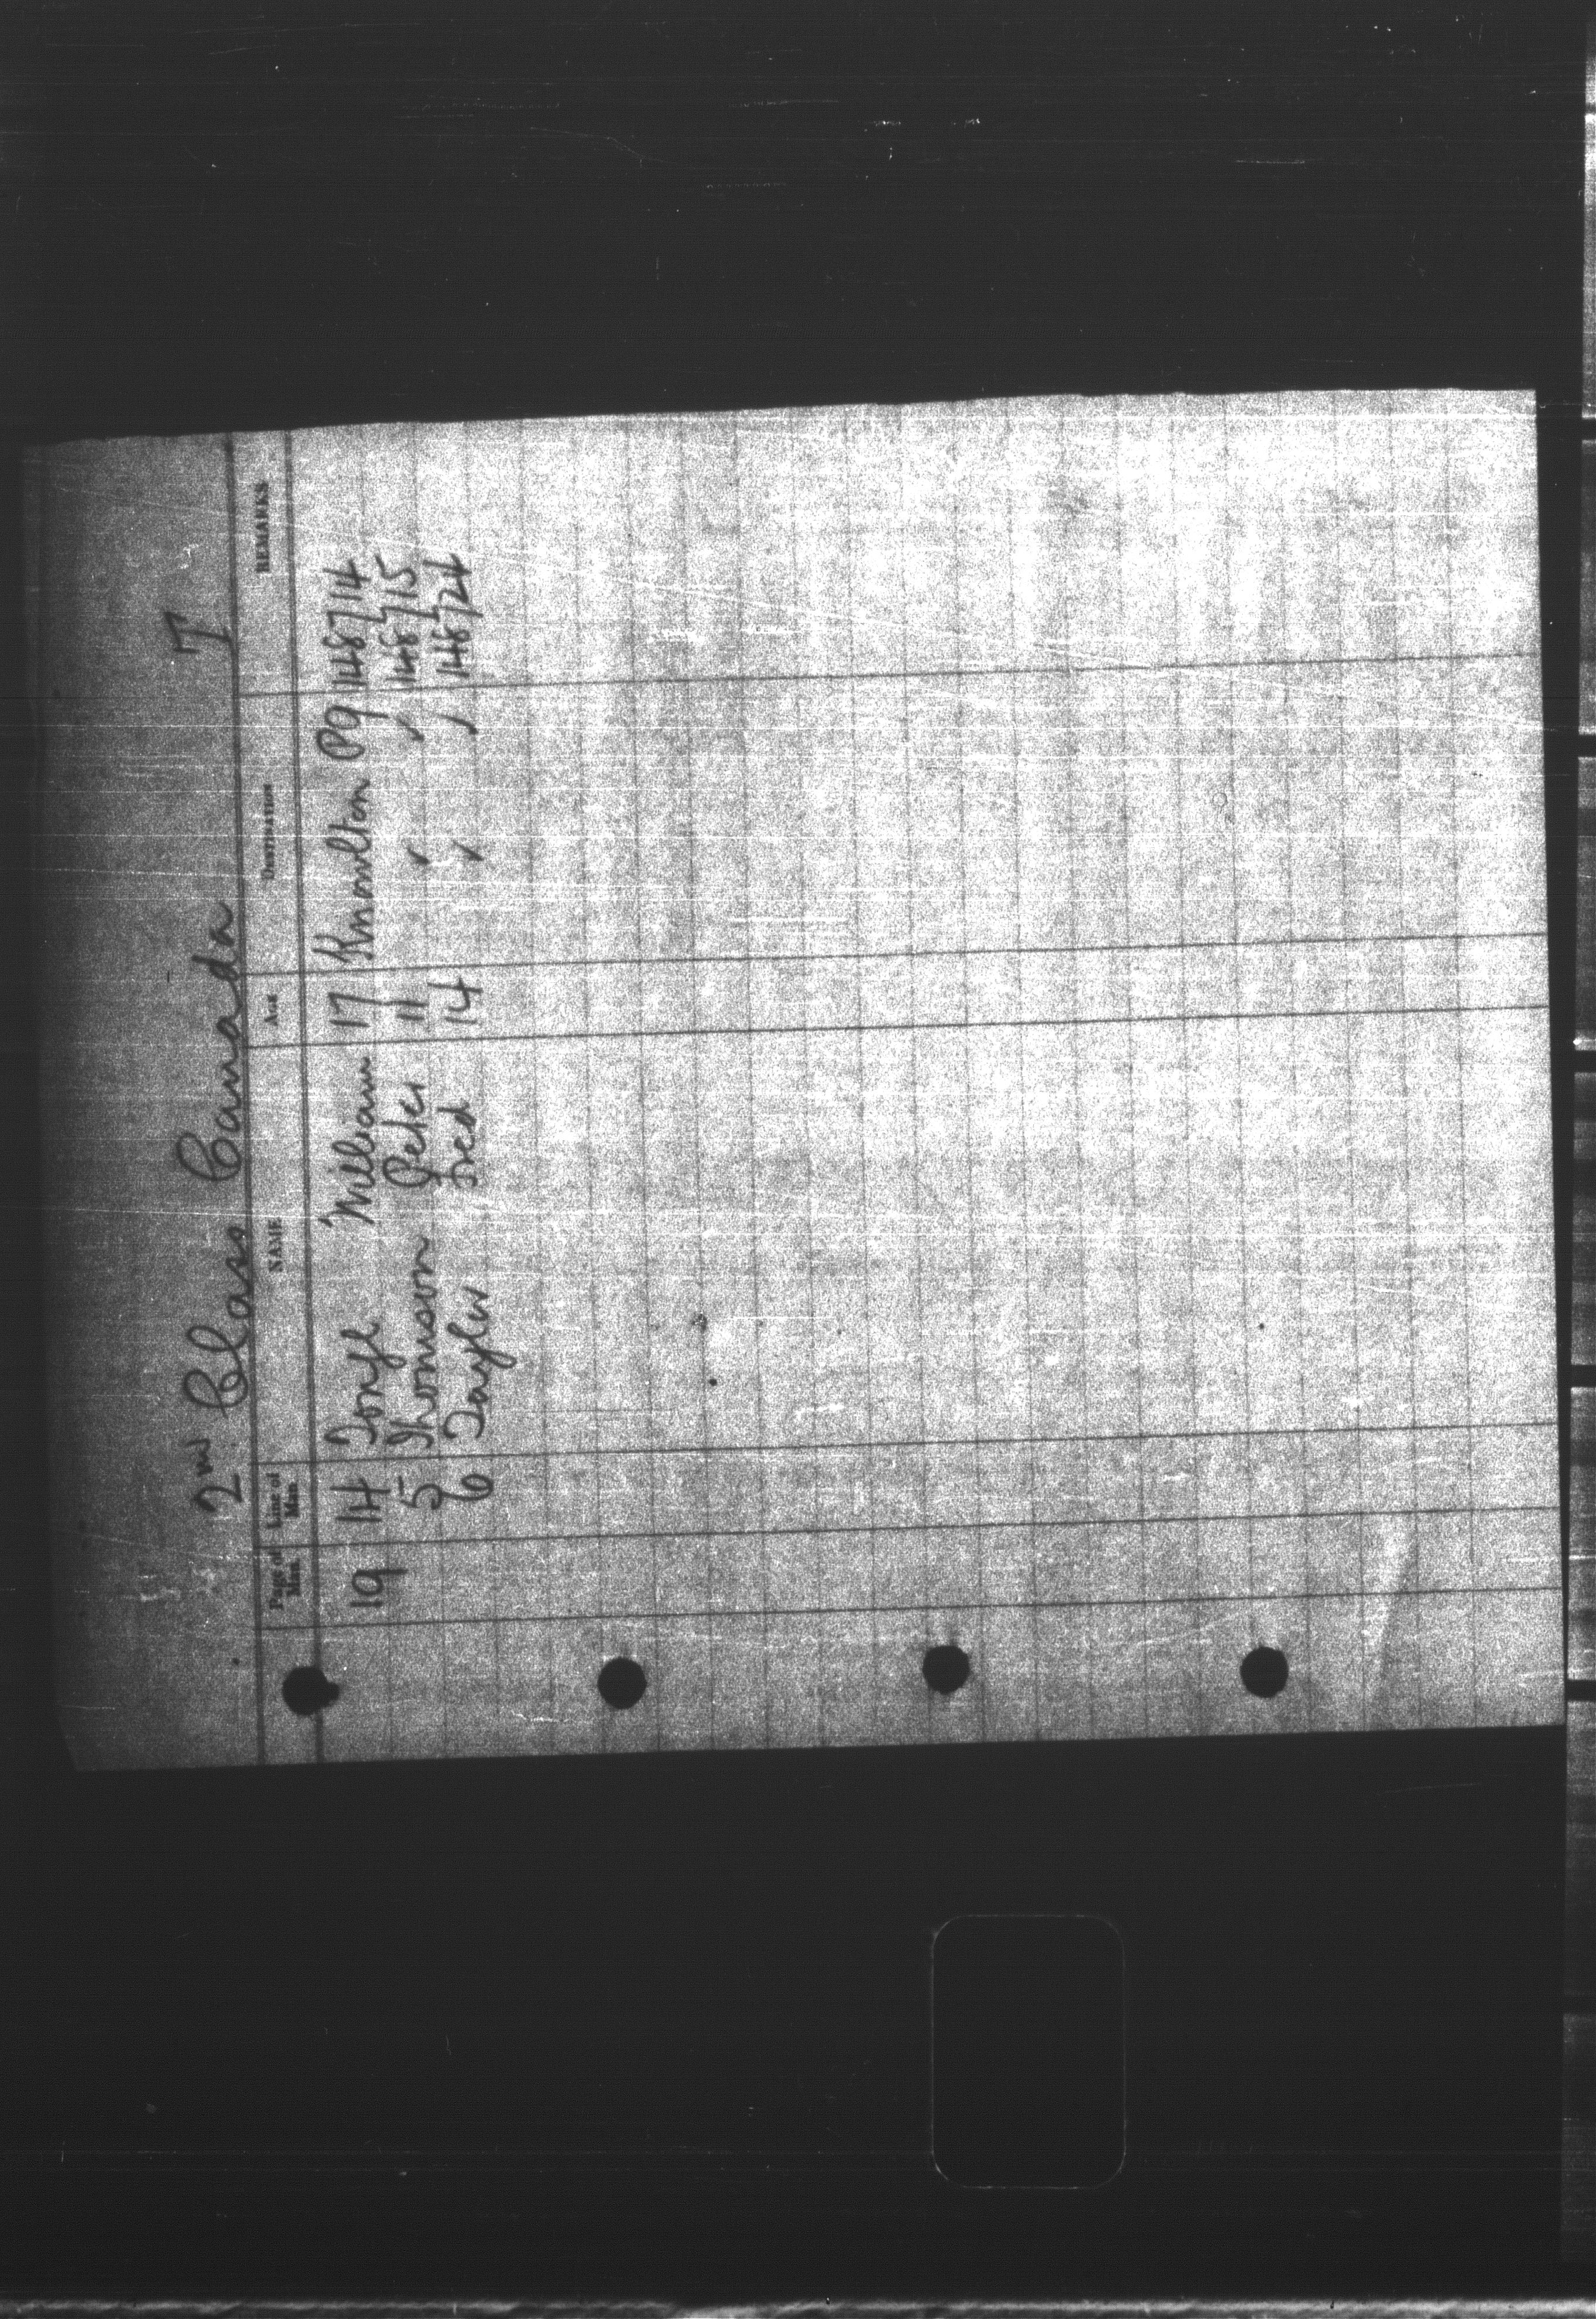 2nd Class Canada T
Page of Man. Line of Man. NAME AGE DESTINATION REMARKS
19 14 Tonge William 17 Knowlton PQ 148714
5 Thomson Peter 11 ✓ ✓ 148715
6 Taylor Fred 14 ✓ ✓ 148724